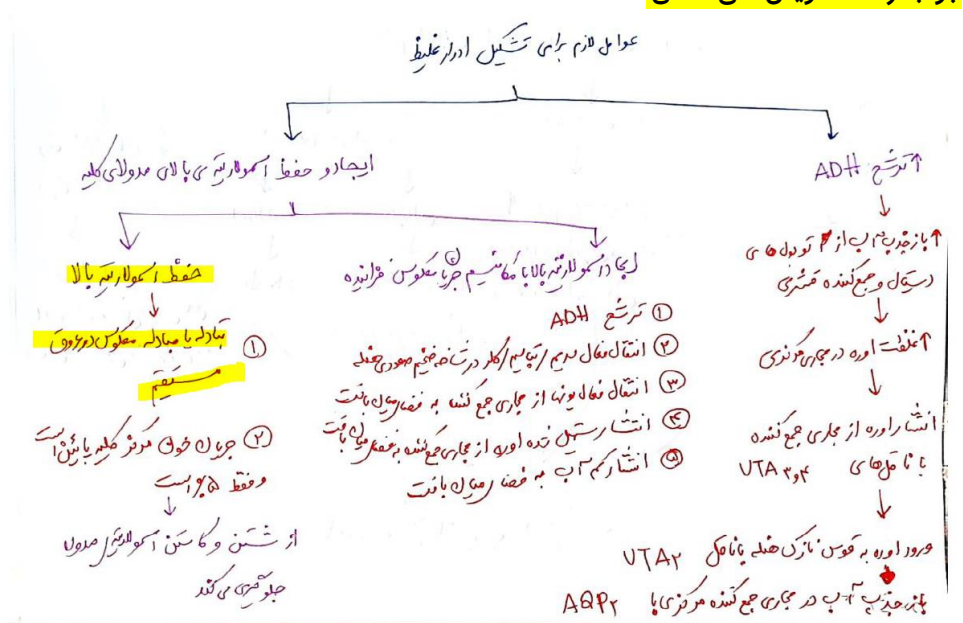 عوامل لازم برای تشکیل ادرار غلیظ
↑ ترشح ADH
↓
↑ بازجذب آب از توبول های
دیستال و جمع کننده قشری
↓
↑ غلظت اوره در مجاری گردندی
↓
انتشار اوره از مجاری جمع کننده
با ناقل های UTA ۳و۴
↓
ورود اوره به قوس نازک هنله با ناقل UTA۲
↓
باز جذب آب در مجاری جمع کننده مرکزی با AQP۲
ایجاد و حفظ اسمولاریته ی بالای مدولای کلیه
ایجاد اسمولاریته بالا با مکانیسم جریان معکوس فزاینده
① ترشح ADH
② انتقال فعال سدیم / پتاسیم / کلر در شاخه ضخیم صعودی هنله
③ انتقال فعال یونها از مجاری جمع کننده به فضای میان بافت
④ انتشار تسهیل شده اوره از مجاری جمع کننده به فضای میان بافت
⑤ انتشار کم آب به فضای میان بافت
حفظ اسمولاریته بالا
↓
① تبادله یا مبادله معکوس در عروق
مستقیم
② جریان خون مرکز کلیه پایین است
و فقط ۵٪ است
↓
از شستن و کاستن اسمولاریته مدولا
جلوگیری می کند